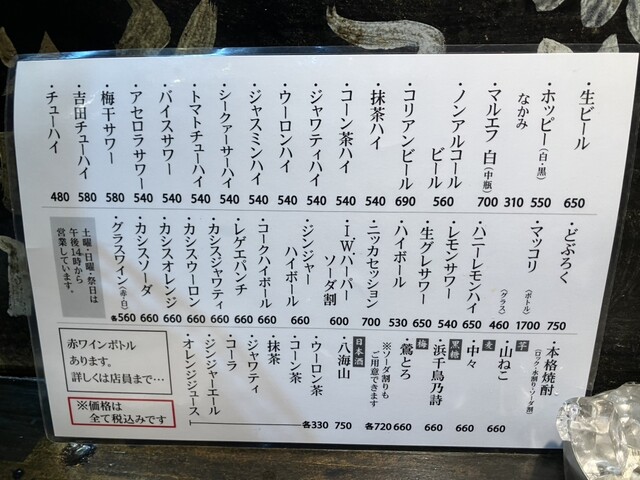 ・生ビール 650
・ホッピー(白・黒) 550
なかみ 310
・マルエフ 白(中瓶) 700
・ノンアルコール
ビール 560
・コリアンビール 690
・抹茶ハイ 540
・コーン茶ハイ 540
・ジャワティハイ 540
・ウーロンハイ 540
・ジャスミンハイ 540
・シークァーサーハイ 540
・トマトチューハイ 540
・バイスサワー 540
・アセロラサワー 540
・梅干サワー 580
・吉田チューハイ 580
・チューハイ 480
・どぶろく 750
・マッコリ (ボトル) 1700
(グラス) 460
・ハニーレモンハイ 650
・レモンサワー 540
・生グレサワー 650
・ハイボール 530
・ニッカセッション 700
・I.W.ハーパー
ソーダ割 600
・ジンジャー
ハイボール 660
・コークハイボール 660
・レゲエパンチ 660
・カシスジャワティ 660
・カシスウーロン 660
・カシスオレンジ 660
・カシスソーダ 660
・グラスワイン(赤・白) 各560
土曜・日曜・祭日は
午後14時から
営業しています。
・本格焼酎
(ロック・水割り・ソーダ割)
芋
・山ねこ 660
麦
・中々 660
黒糖
・浜千鳥乃詩 660
梅
・鶯とろ 660
※ソーダ割りも
ご用意できます 各720
日本酒
・八海山 750
・ウーロン茶
・コーン茶
・抹茶
・ジャワティ
・コーラ
・ジンジャーエール
・オレンジジュース
各330
赤ワインボトル
あります。
詳しくは店員まで…
※価格は
全て税込みです